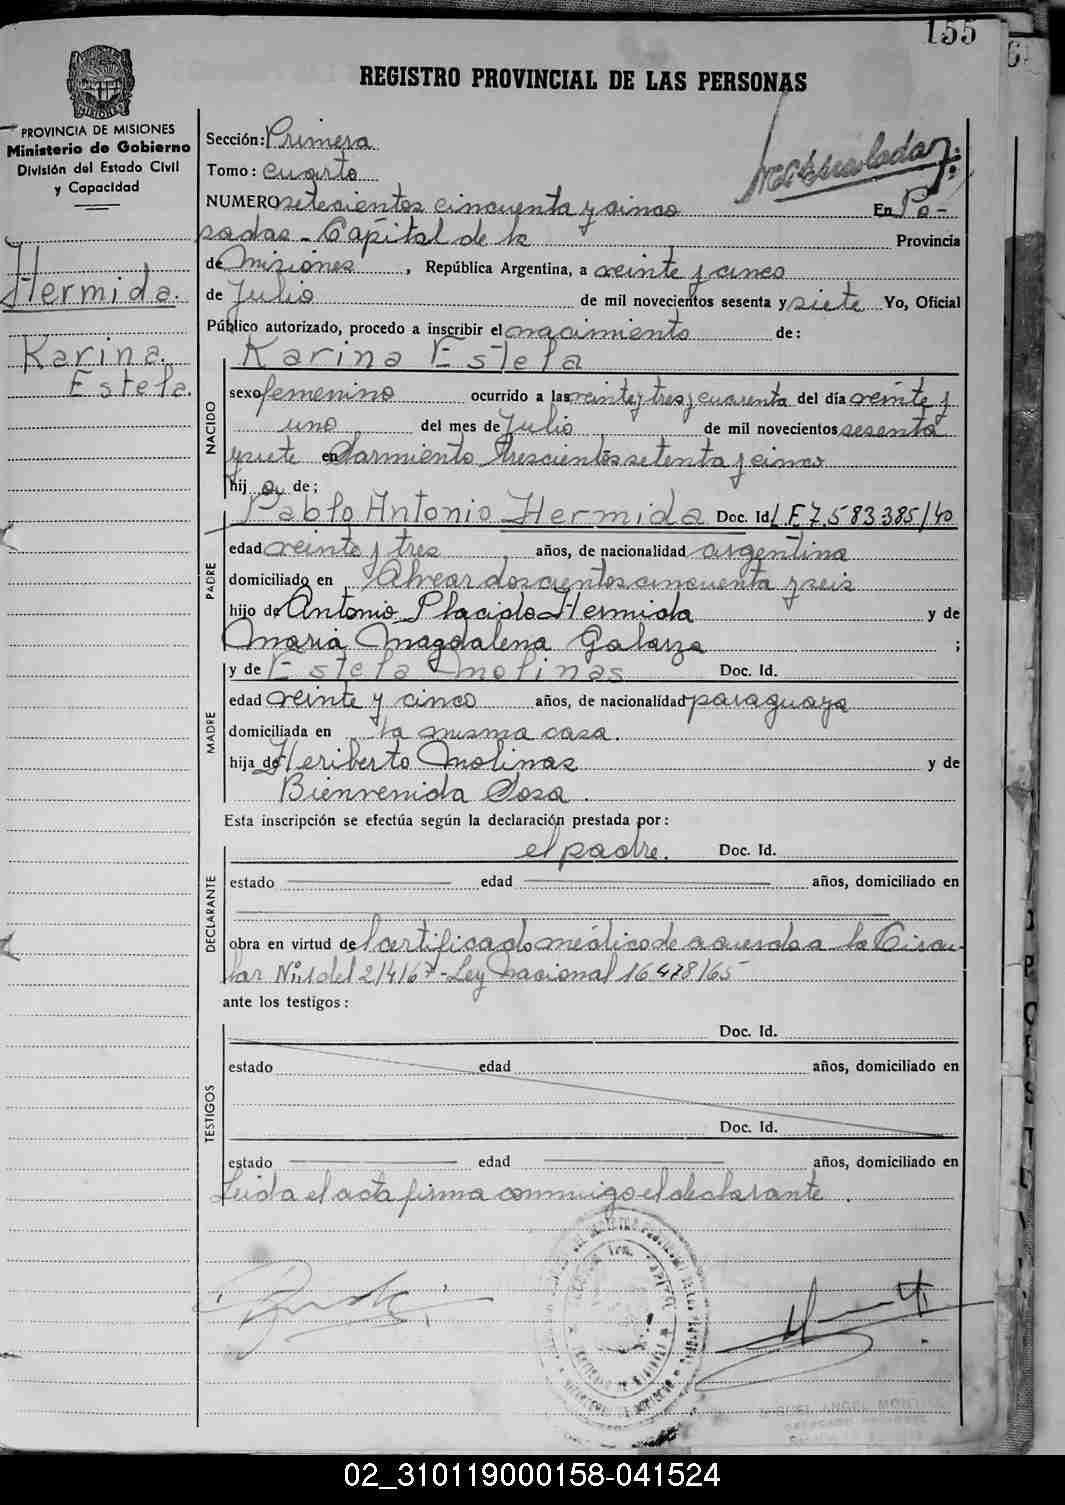 155
REGISTRO PROVINCIAL DE LAS PERSONAS
PROVINCIA DE MISIONES
Ministerio de Gobierno
División del Estado Civil
y Capacidad
Hermida.
Karina
Estela.
Sección: Primera
Tomo: cuarto
NUMERO setecientos cincuenta y cinco En Po-
sadas - Capital de la Provincia
de Misiones, República Argentina, a veinte y cinco
de Julio de mil novecientos sesenta y siete Yo, Oficial
Público autorizado, procedo a inscribir el nacimiento de:
NACIDO
Karina Estela
sexo femenino ocurrido a las veinte y tres y cuarenta del día veinte y
uno del mes de Julio de mil novecientos sesenta
y siete en Sarmiento trescientos setenta y cinco
hij a de;
PADRE
Pablo Antonio Hermida Doc. Id L E 7.583.385/40
edad veinte y tres años, de nacionalidad argentina
domiciliado en Alvear doscientos cincuenta y seis
hijo de Antonio Placido Hermida y de
Maria Magdalena Galarza ;
MADRE
y de Estela Molinas Doc. Id.
edad veinte y cinco años, de nacionalidad paraguaya
domiciliada en la misma casa.
hija de Heriberto Molinas y de
Bienvenida Sosa.
Esta inscripción se efectúa según la declaración prestada por:
DECLARANTE
el padre. Doc. Id.
estado edad años, domiciliado en
obra en virtud de certificado médico de acuerdo a la Circu-
lar Nº 1 del 2/4/67 - Ley Nacional 16478/65
ante los testigos:
TESTIGOS
Doc. Id.
estado edad años, domiciliado en
Doc. Id.
estado edad años, domiciliado en
Leida el acta firma conmigo el declarante.
02_310119000158-041524